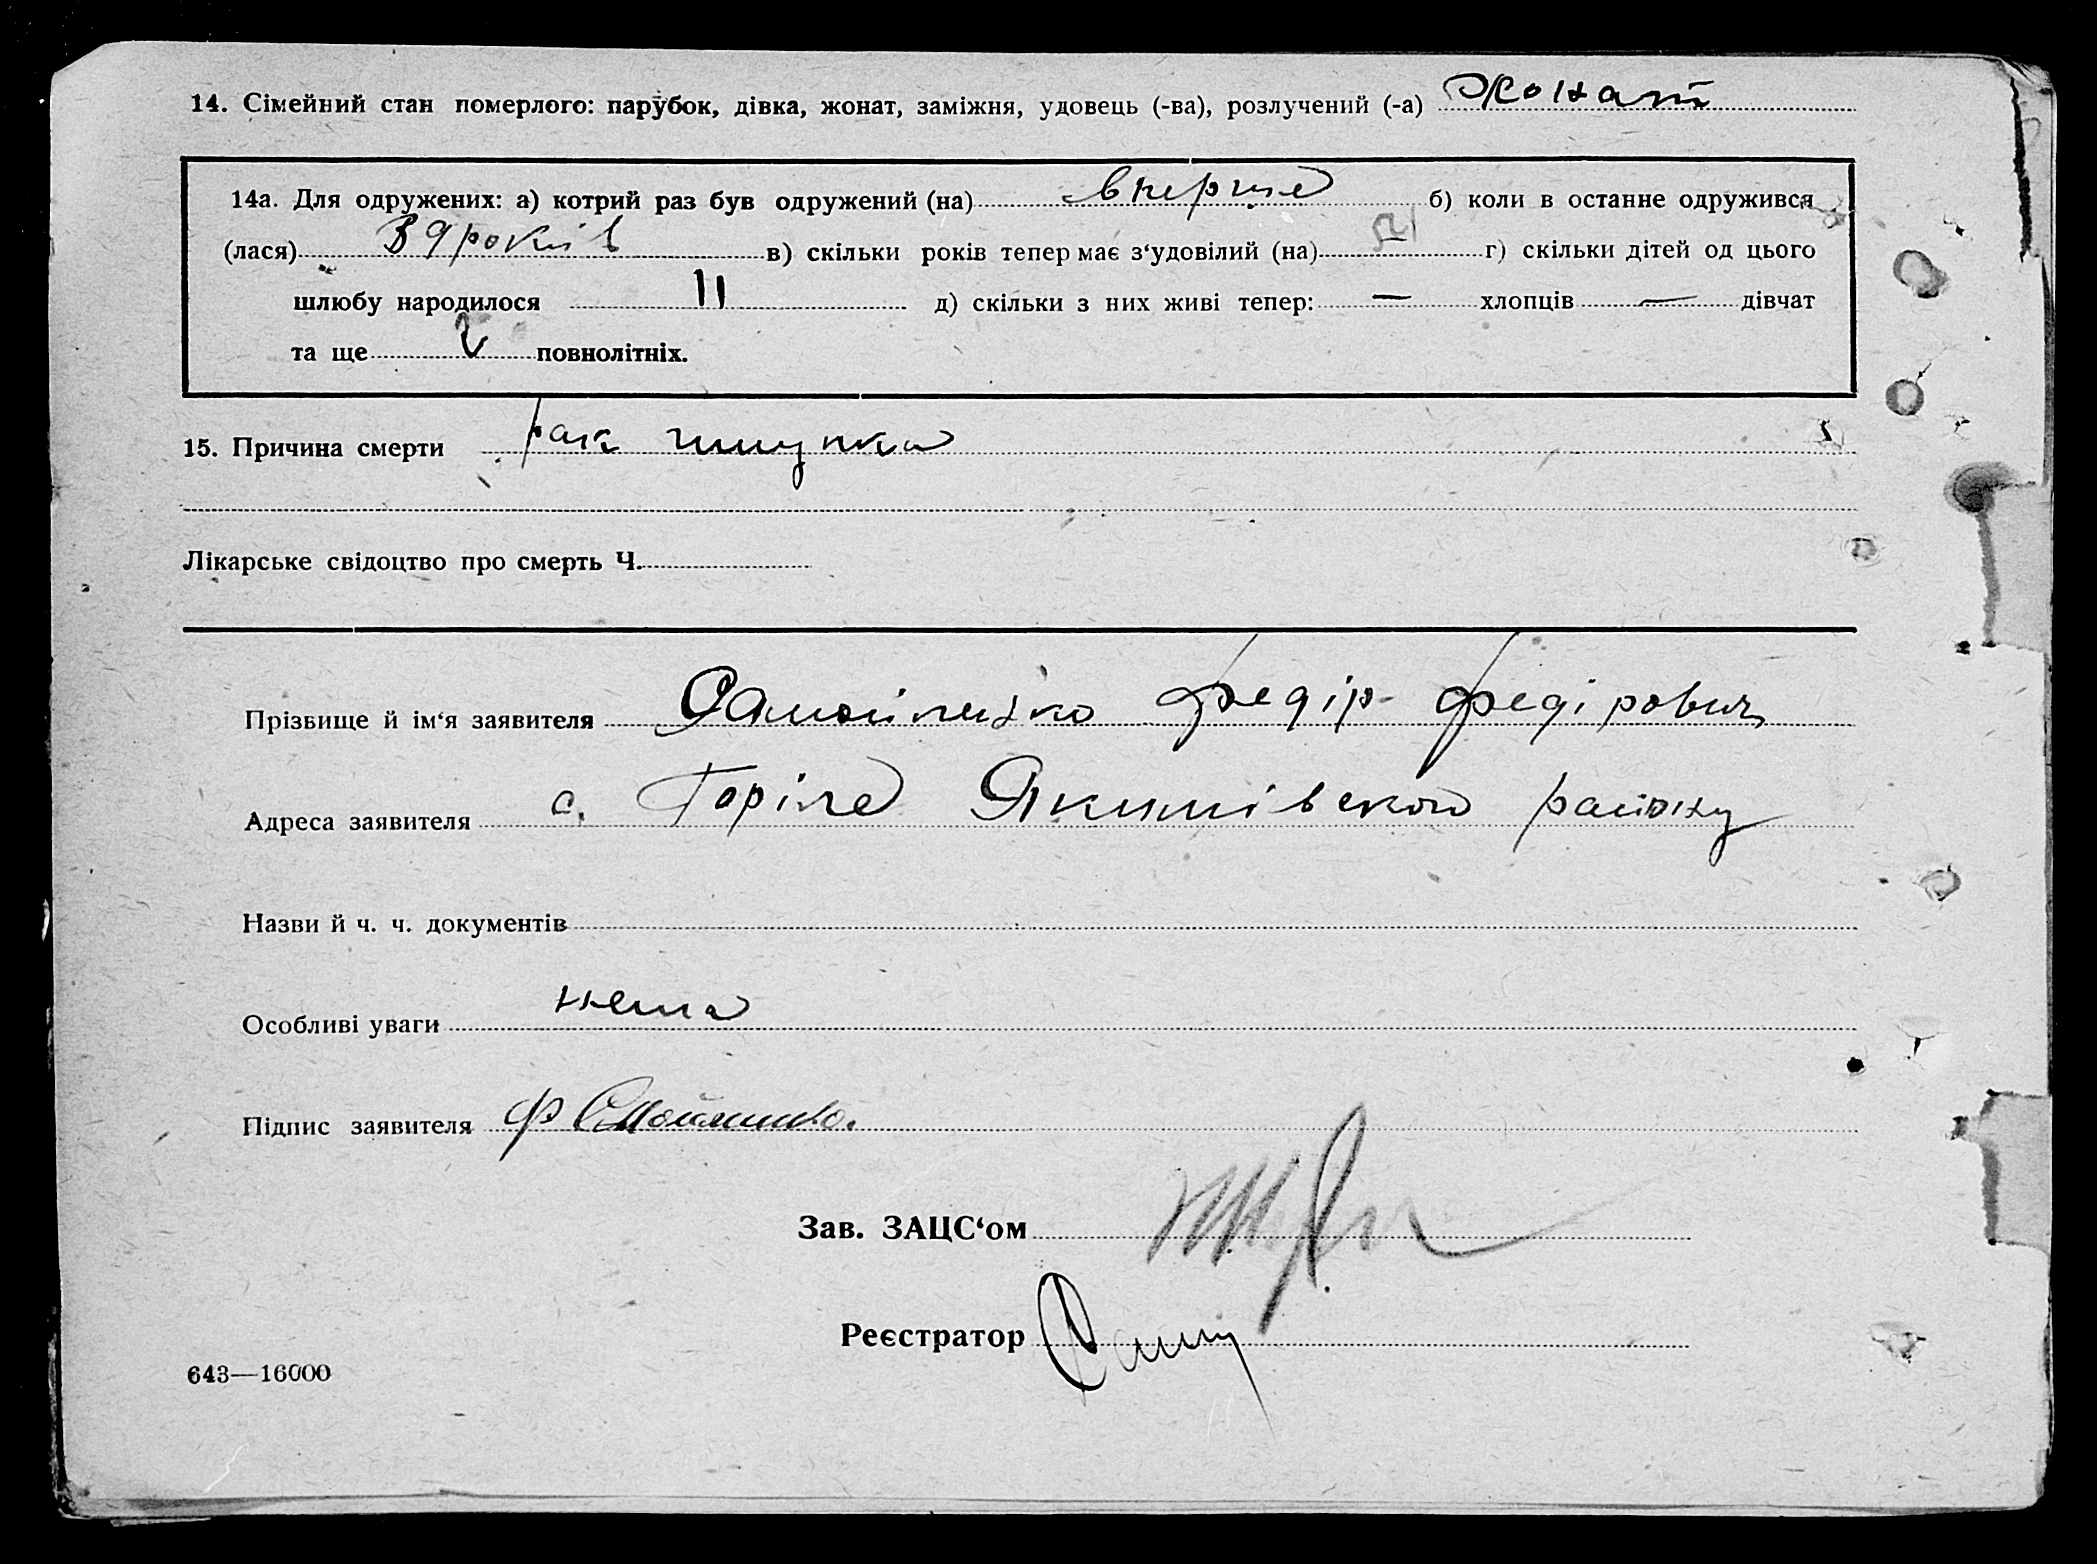 14. Сімейний стан померлого: парубок, дівка, жонат, заміжня, удовець (-ва), розлучений (-а) Жонат
14а. Для одружених: а) котрий раз був одружений (на) вперше б) коли в останне одружився
(лася) 39 років в) скільки років тепер має з‘удовілий (на) г) скільки дітей од цього
шлюбу народилося 11 д) скільки з них живі тепер: — хлопців — дівчат
та ще 2 повнолітніх.
15. Причина смерти рак шлунка
Лікарське свідоцтво про смерть Ч.
Прізвище й ім‘я заявителя Самойленко Федір Федірович
Адреса заявителя с. Горіле Якимівского району
Назви й ч. ч. документів
Особливі уваги нема
Підпис заявителя Ф Самойленко.
Зав. ЗАЦС‘ом
Реєстратор
643—16000